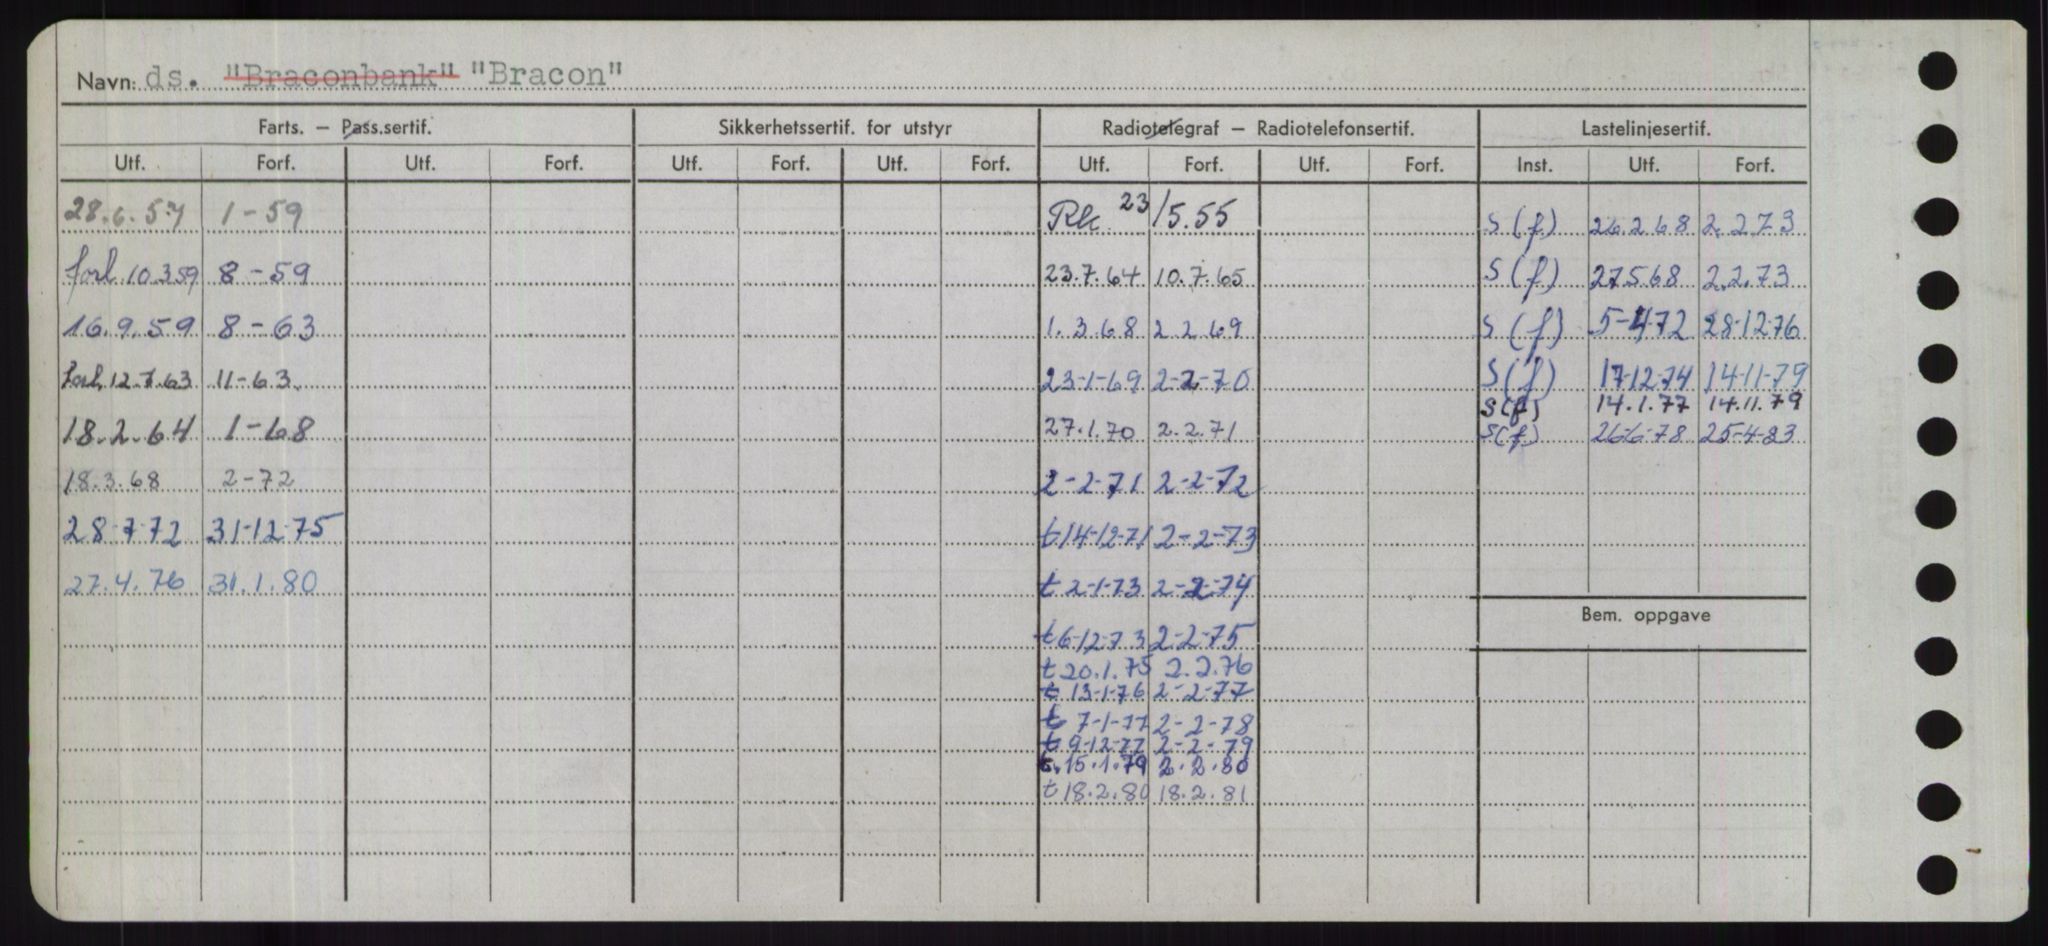 Navn: ds. "Braconbank" "Bracon"
Farts. – Pass.sertif. Sikkerhetssertif. for utstyr Radiotelegraf – Radiotelefonsertif. Lastelinjesertif.
Utf. Forf. Utf. Forf. Utf. Forf. Utf. Forf. Utf. Forf. Utf. Forf. Inst. Utf. Forf.
28.6.57 1-59 Rk 23/5.55 S(f) 26.2.68 2.2.73
forl 10.3.59 8-59 23.7.64 10.7.65 S(f) 27.5.68 2.2.73
16.9.59 8-63 1.3.68 2.2.69 S(f) 5-4-72 28-12-76
forl. 12.7.63 11-63 23-1-69 2-2-70 S(f) 17-12-74 14-11-79
S(f) 14.1.77 14.11.79
18.2.64 1-68 27.1.70 2.2.71 S(f) 26-6-78 25-4-83
18.3.68 2-72 2-2-71 2-2-72
28-7-72 31-12-75 t 14-12-71 2-2-73
27.4.76 31.1.80 t 2-1-73 2-2-74
Bem. oppgave
t 6-12-73 2-2-75
t 20.1.75 2.2.76
t 13-1-76 2-2-77
t 7-1-77 2-2-78
t 9-12-77 2-2-79
t. 15.1.79 2.2.80
t 18.2.80 18.2.81